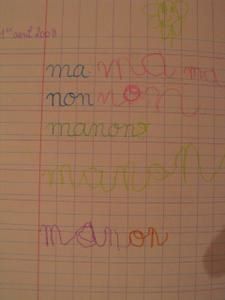 1er avril 2008
ma ma ma
non non
manon
manon
manon